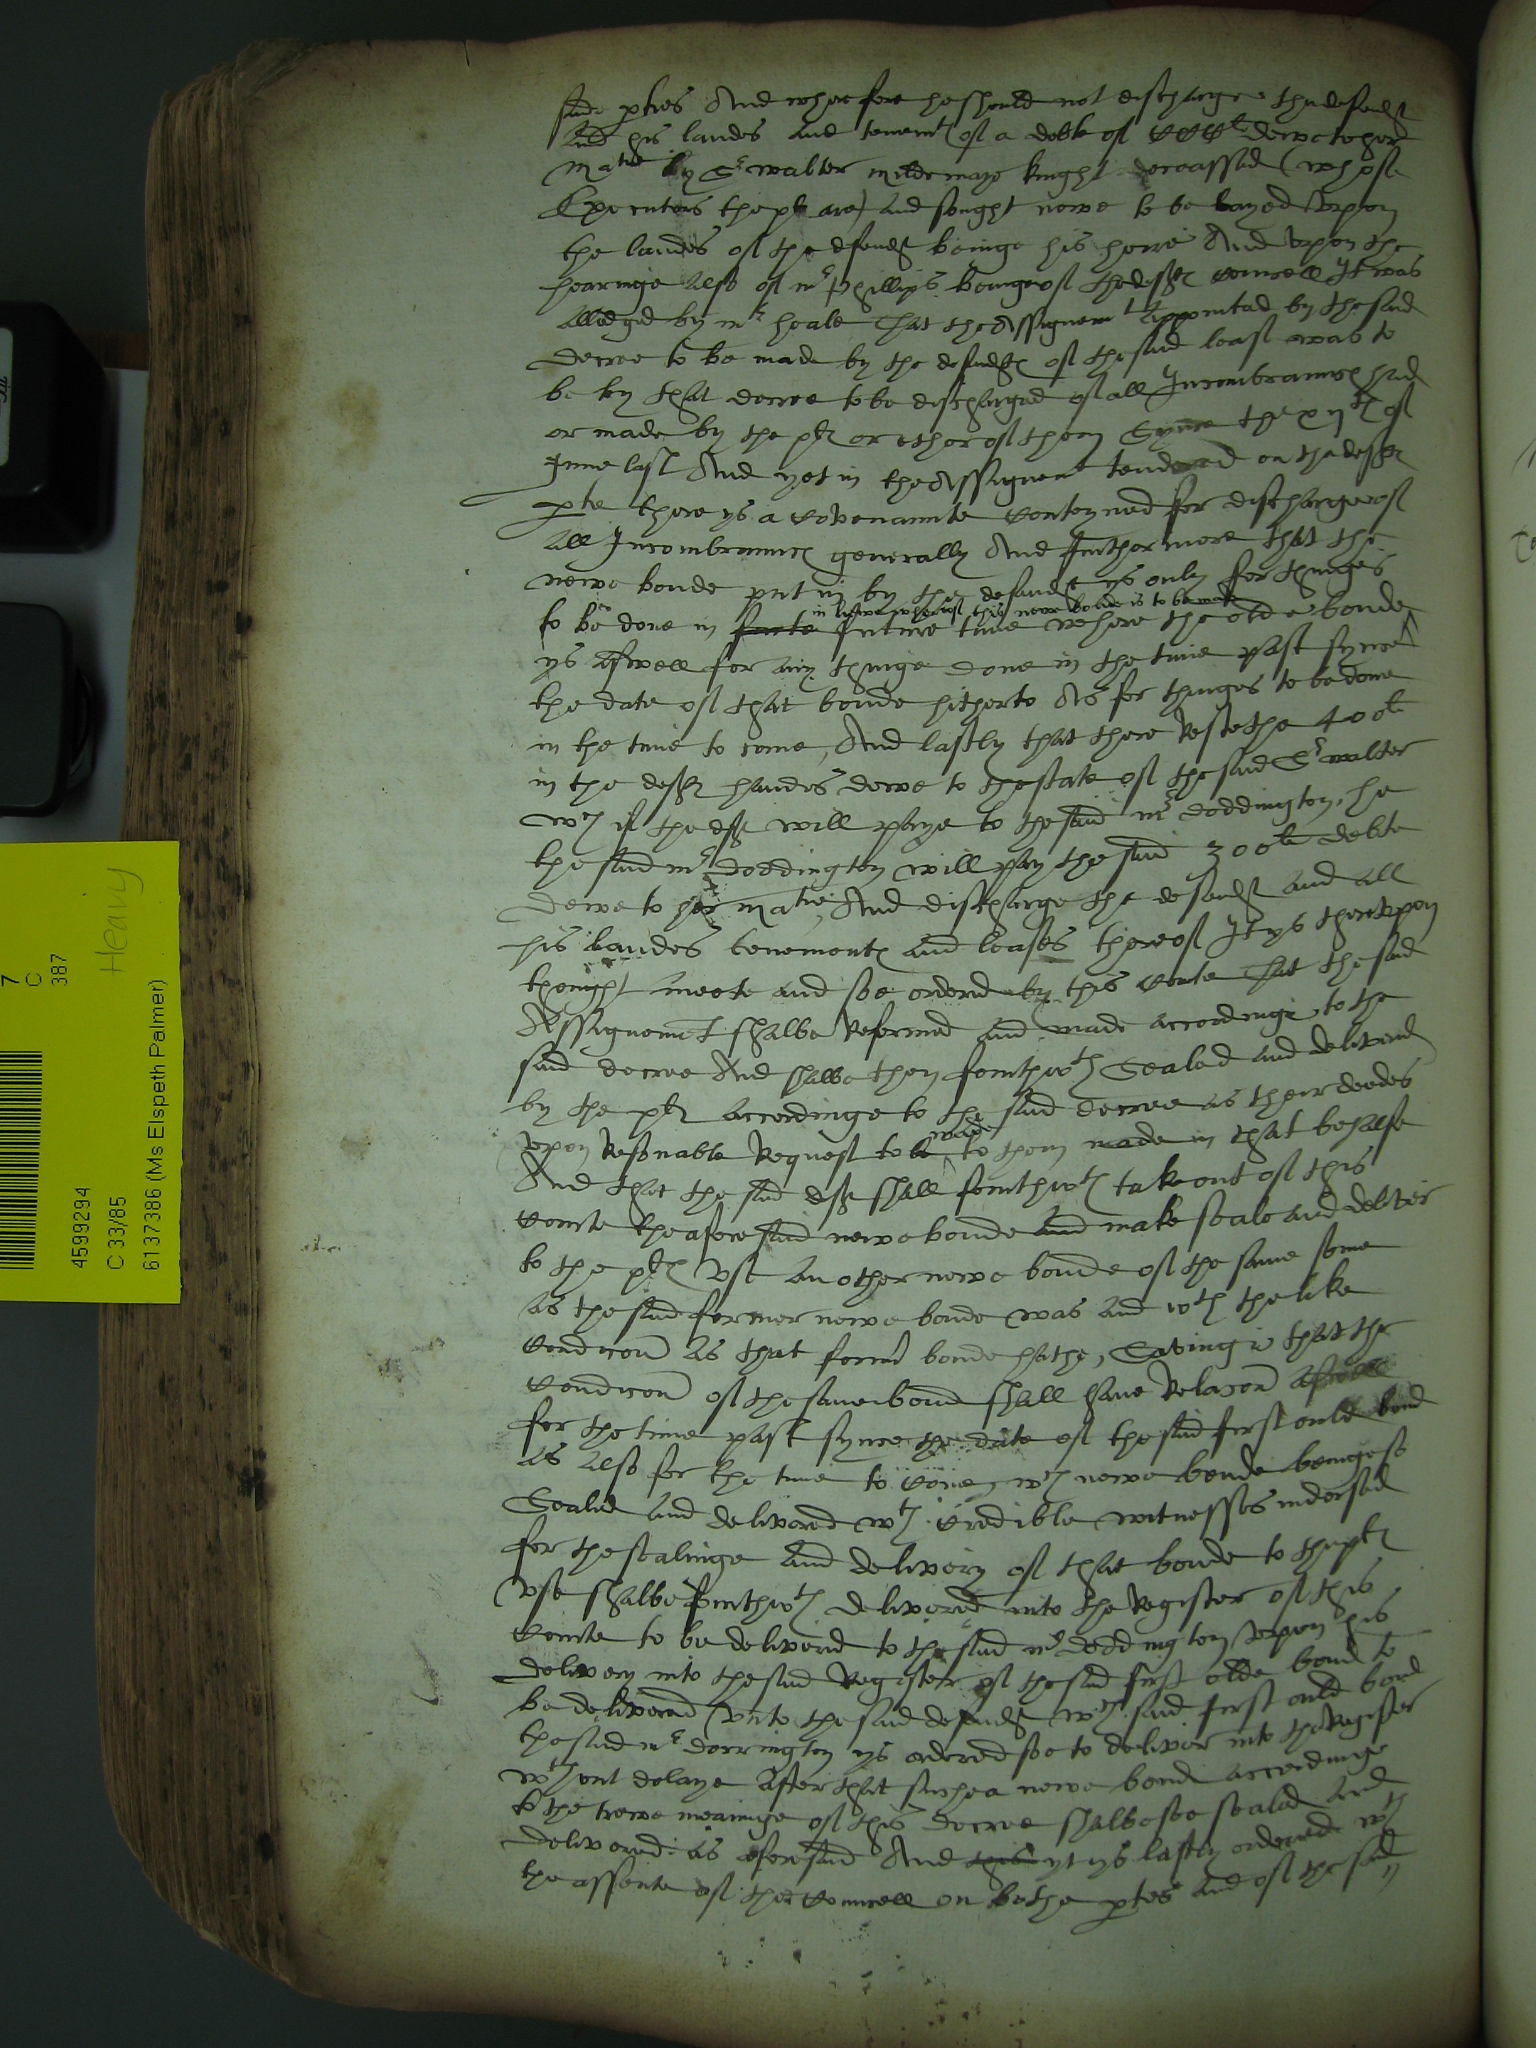 said pties And wherfore he should not discharge the defendt
And his landes and tenemtes of a debte of CCCli dewe to her
Matie by Sr walter mildemaye knight deceassed (whose
Executors the plts are) and sought nowe to be layed vpon
the landes of the defendt beinge his heire And vpon the
hearinge also of mr Phillips beinge of the deftes Councell It was
alledged by mr heale that the Assignemt appointed by the said
decree to be made by the defendtes of the said lease was to
be by that decree to be discharged of all Incombrannces had
or made by the plts or ether of them Synce the xijth of
June last And yet in the Assignemt tendered on the deftes
pte there ys a Covenannte conteyned for discharge of
all Incombrannces generally And further more that the
newe bonde put in by the defendt ys only for thinges
in liewe wherof this newe bonde is to be made
to be done in future time where the olde bonde
ys aswell for any thinge done in the time past synce
the date of that bonde hitherto As for thinges to be done
in the time to come, And lastly that there reste the 400li
in the deftes handes dewe to thestate of the said Sr walter
wch if the deft will paye to the said mr doddington, he
the said mr doddington will pay the said 300li debte
dewe to her matie, And discharge the defendt and all
his landes tenementes and leases thereof It ys therevpon
thought meete and soe ordered by this Courte that the said
Assignement shalbe reformed and made accordinge to the
said decree And shalbe then forthwth Sealed and delivered
by the plts accordinge to the said decree as their deedes
made
vpon resonable request to be to them made in that behalfe
And that the said deft shall forthwth take out of this
Courte the aforesaid newe bonde and make seale and deliver
to the pltes vse another newe bonde of the same some
as the said former newe bonde was and wth the like
Condicon as that former bonde hathe, Savinge that the
Condicon of the same bond shall haue relacon aswell
for the time past synce the date of the said first ould bond
as also for the time to come, wch newe bonde beinge so
Sealed and delivered wth Credible witnesses indorsed
for the sealinge and delivery of that bonde to the pltes
vse shalbe forthwth delivered into the Register of this
Courte to be delivered to the said mr doddington vpon his
delivery into the said Register of the said first olde bond to
be delivered vnto the said defendt wch said first ould bond
the said mr dorrington ys ordered soe to deliver into the Register
wthout delaye after that suche a newe bond accordinge
to the trewe meaninge of this decree shalbe soe sealed and
delivered as aforesaid And this yt ys lastly ordered wth
the assente of the Councell on bothe ptes and of the said
4599294
C 33/85
6137386 (Ms Elspeth Palmer)
7
C
387
Heavy